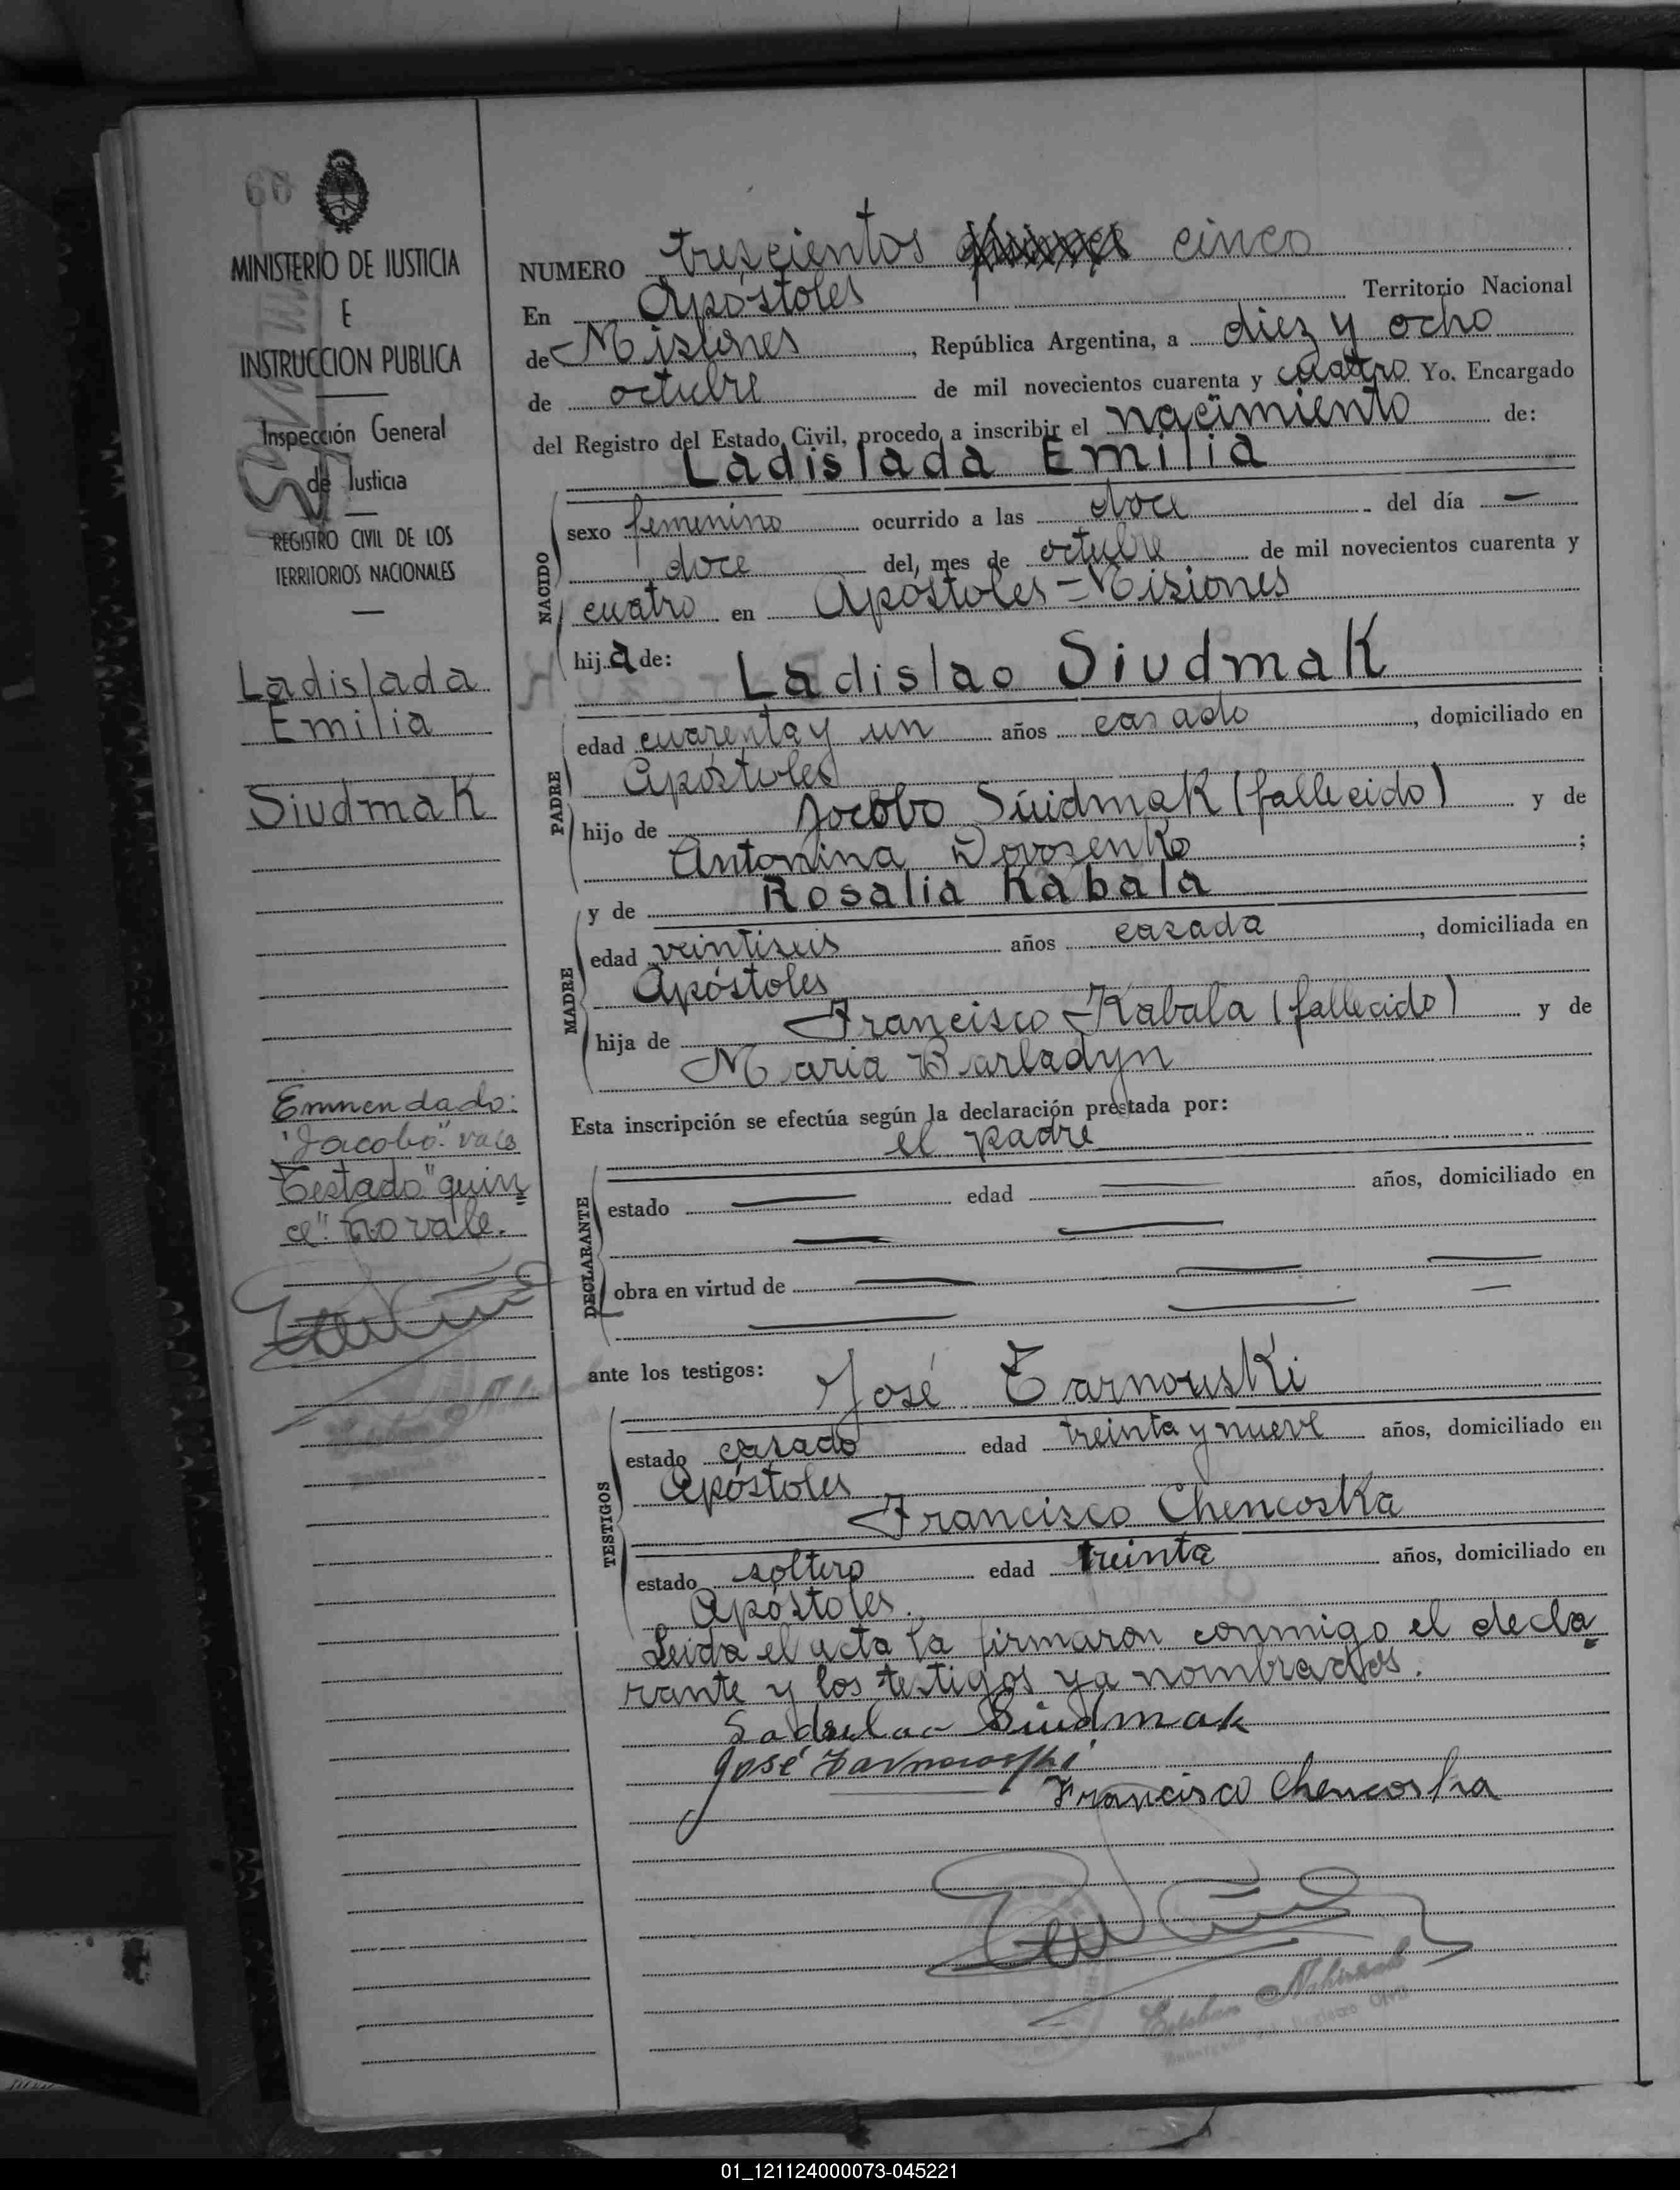 60
MINISTERIO DE JUSTICIA
E
INSTRUCCION PUBLICA
Inspección General
de Justicia
REGISTRO CIVIL DE LOS
TERRITORIOS NACIONALES
Ladislada
Emilia
Siudmak
Emmendado:
"Jacobo" vale
Testado "quin
ce" no vale.
NUMERO trescientos quince cinco
En Apóstoles Territorio Nacional
de Misiones, República Argentina, a diez y ocho
de octubre de mil novecientos cuarenta y cuatro Yo. Encargado
del Registro del Estado Civil, procedo a inscribir el nacimiento de:
Ladislada Emilia
NACIDO
sexo femenino ocurrido a las doce del día —
doce del mes de octubre de mil novecientos cuarenta y
cuatro en Apóstoles = Misiones
hija de: Ladislao Siudmak
PADRE
edad cuarenta y un años casado, domiciliado en
Apóstoles
hijo de Jacobo Siudmak (fallecido) y de
Antonina ;
y de Rosalia Kabala
MADRE
edad veintiseis años casada, domiciliada en
Apóstoles
hija de Francisco Kabala (fallecido) y de
Maria Barladyn
Esta inscripción se efectúa según la declaración prestada por:
el padre
DECLARANTE
estado — edad — años, domiciliado en
obra en virtud de —
ante los testigos: José Tarnouski
TESTIGOS
estado casado edad treinta y nueve años, domiciliado en
Apóstoles
Francisco Chencoska
estado soltero edad treinta años, domiciliado en
Apóstoles.
Leida el acta la firmaron conmigo el decla
rante y los testigos ya nombrados.
Ladislao Siudmak
José Tarnowski
Francisco Chencoska
Esteban
Encargado del Registro Civil
01_121124000073-045221